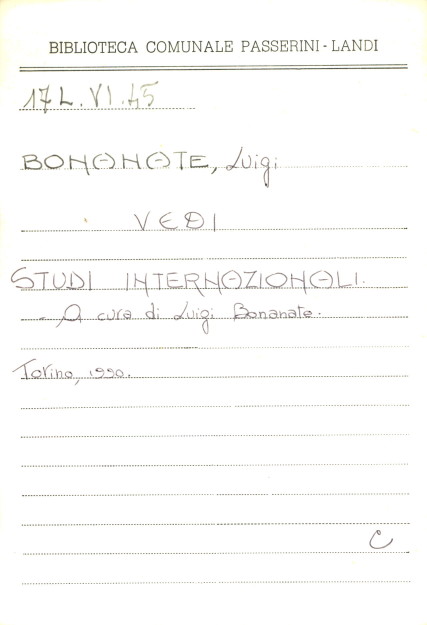 BIBLIOTECA COMUNALE PASSERINI - LANDI
17 L. VI. 45
BONANATE, Luigi
VEDI
STUDI INTERNAZIONALI.
- A cura di Luigi Bonanate.
Torino, 1990.
C